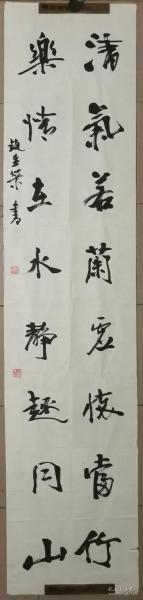 清氣若蘭虛懷當竹
樂情在水靜趣同山